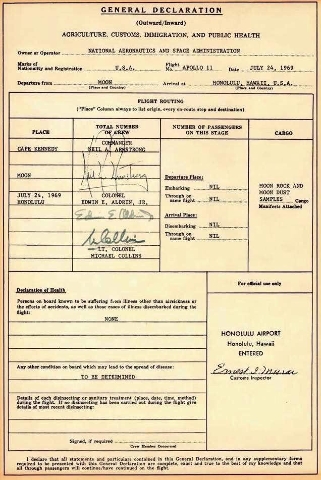 GENERAL DECLARATION
(Outward/Inward)
AGRICULTURE, CUSTOMS, IMMIGRATION, AND PUBLIC HEALTH
Owner or Operator NATIONAL AERONAUTICS AND SPACE ADMINISTRATION
Marks of Nationality and Registration U.S.A. Flight No. APOLLO 11 Date JULY 24, 1969
Departure from MOON Arrival at HONOLULU, HAWAII, U.S.A.
(Place and Country) (Place and Country)
FLIGHT ROUTING
("Place" Column always to list origin, every en-route stop and destination)
PLACE
TOTAL NUMBER OF CREW
NUMBER OF PASSENGERS ON THIS STAGE
CARGO
CAPE KENNEDY
COMMANDER
NEIL A. ARMSTRONG
MOON
Departure Place:
Embarking NIL
Through on same flight NIL
MOON ROCK AND
MOON DUST
SAMPLES Cargo
Manifests Attached
JULY 24, 1969
HONOLULU
COLONEL
EDWIN E. ALDRIN, JR.
Arrival Place:
Disembarking NIL
Through on same flight NIL
LT. COLONEL
MICHAEL COLLINS
Declaration of Health
For official use only
Persons on board known to be suffering from illness other than airsickness or
the effects of accidents, as well as those cases of illness disembarked during the
flight:
NONE
HONOLULU AIRPORT
Honolulu, Hawaii
ENTERED
Customs Inspector
Any other condition on board which may lead to the spread of disease:
TO BE DETERMINED
Details of each disinsecting or sanitary treatment (place, date, time, method)
during the flight. If no disinsecting has been carried out during the flight give
details of most recent disinsecting:
Signed, if required
(Crew Member Concerned)
I declare that all statements and particulars contained in this General Declaration, and in any supplementary forms
required to be presented with this General Declaration are complete, exact and true to the best of my knowledge and that
all through passengers will continue/have continued on the flight.